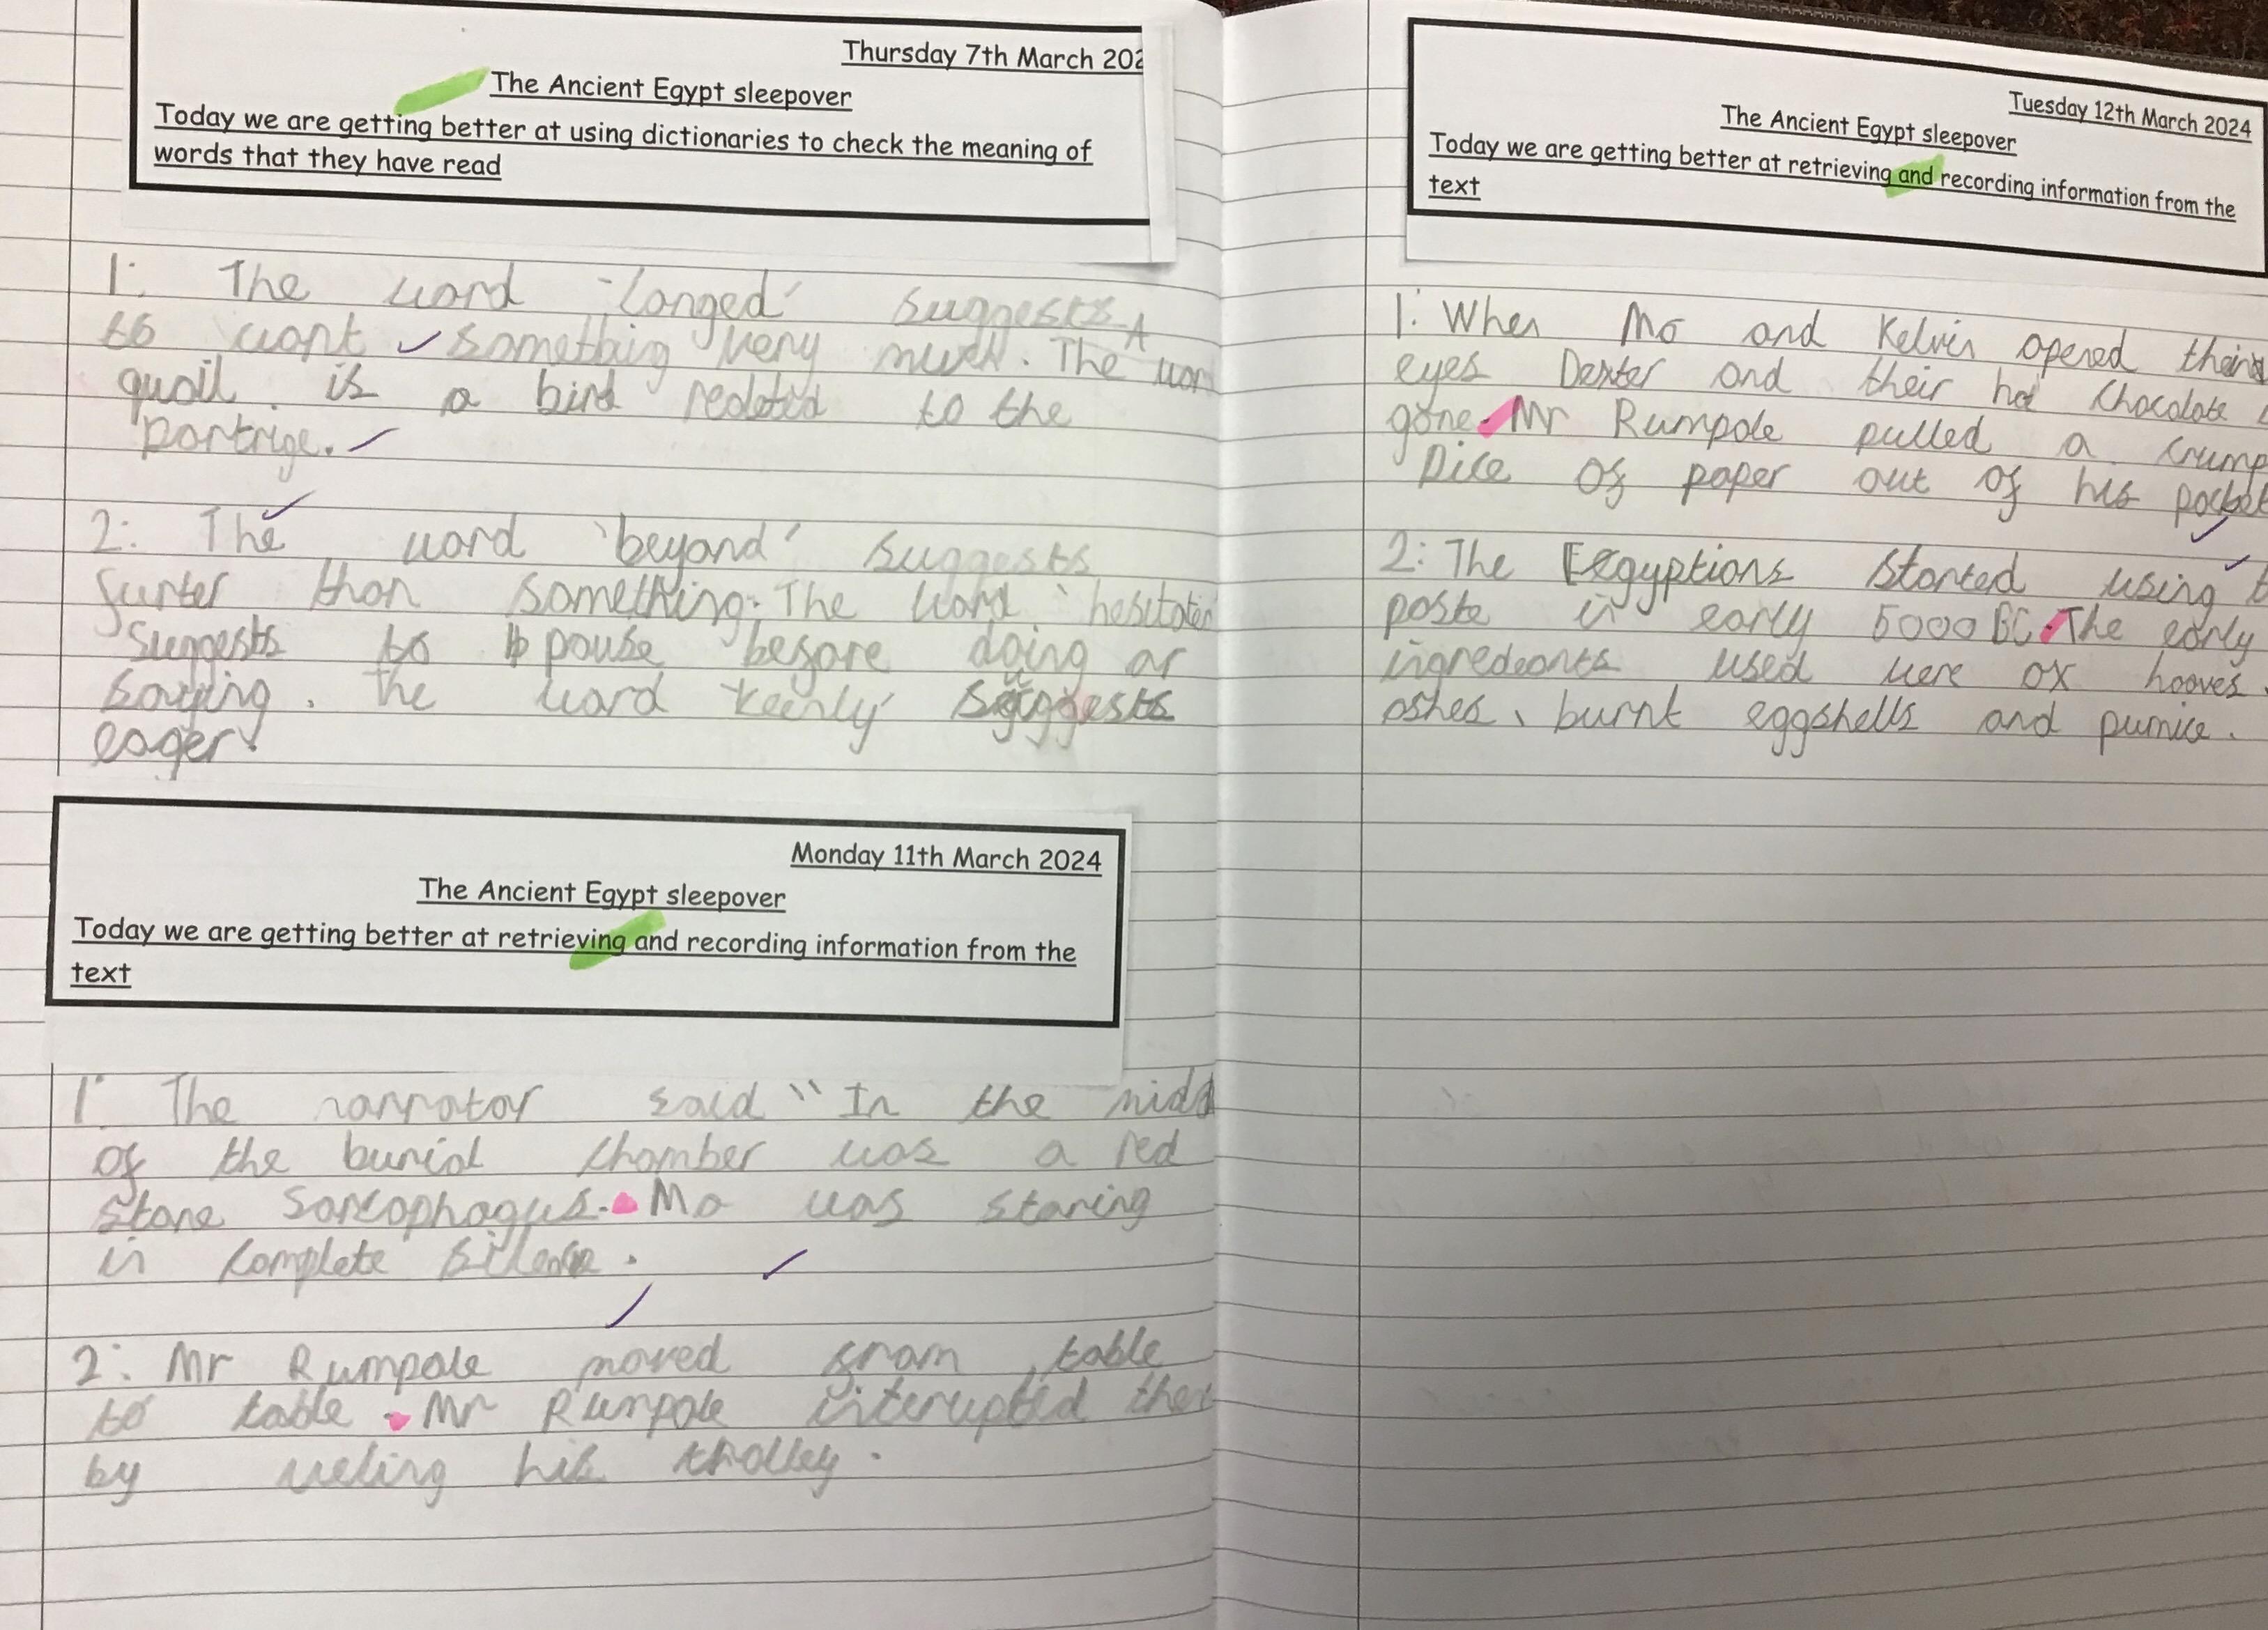 Thursday 7th March 202
The Ancient Egypt sleepover
Today we are getting better at using dictionaries to check the meaning of
words that they have read
1: The word 'longed' suggests
to want something very much. The wor
quail is a bird related to the
partrige.
2: The word 'beyond' suggests
furter than something. The word 'hesitates
suggests to pause before doing or
saying. The word 'keenly' suggests
eager.
Monday 11th March 2024
The Ancient Egypt sleepover
Today we are getting better at retrieving and recording information from the
text
1: The narrator said "In the midd
of the burial chamber was a red
stone sarcophagus. Mo was staring
in complete silence.
2: Mr Rumpole moved from table
to table. Mr Rumpole interupted them
by weling his trolley.
Tuesday 12th March 2024
The Ancient Egypt sleepover
Today we are getting better at retrieving and recording information from the
text
1: When Mo and Kelvin opened their
eyes Dexter and their hot chocolate
gone. Mr Rumpole pulled a crump
pice of paper out of his pocket
2: The Egyptions started using
paste in early 5000 BC. The early
ingredeants used were ox hooves
ashes, burnt eggshells and pumice.